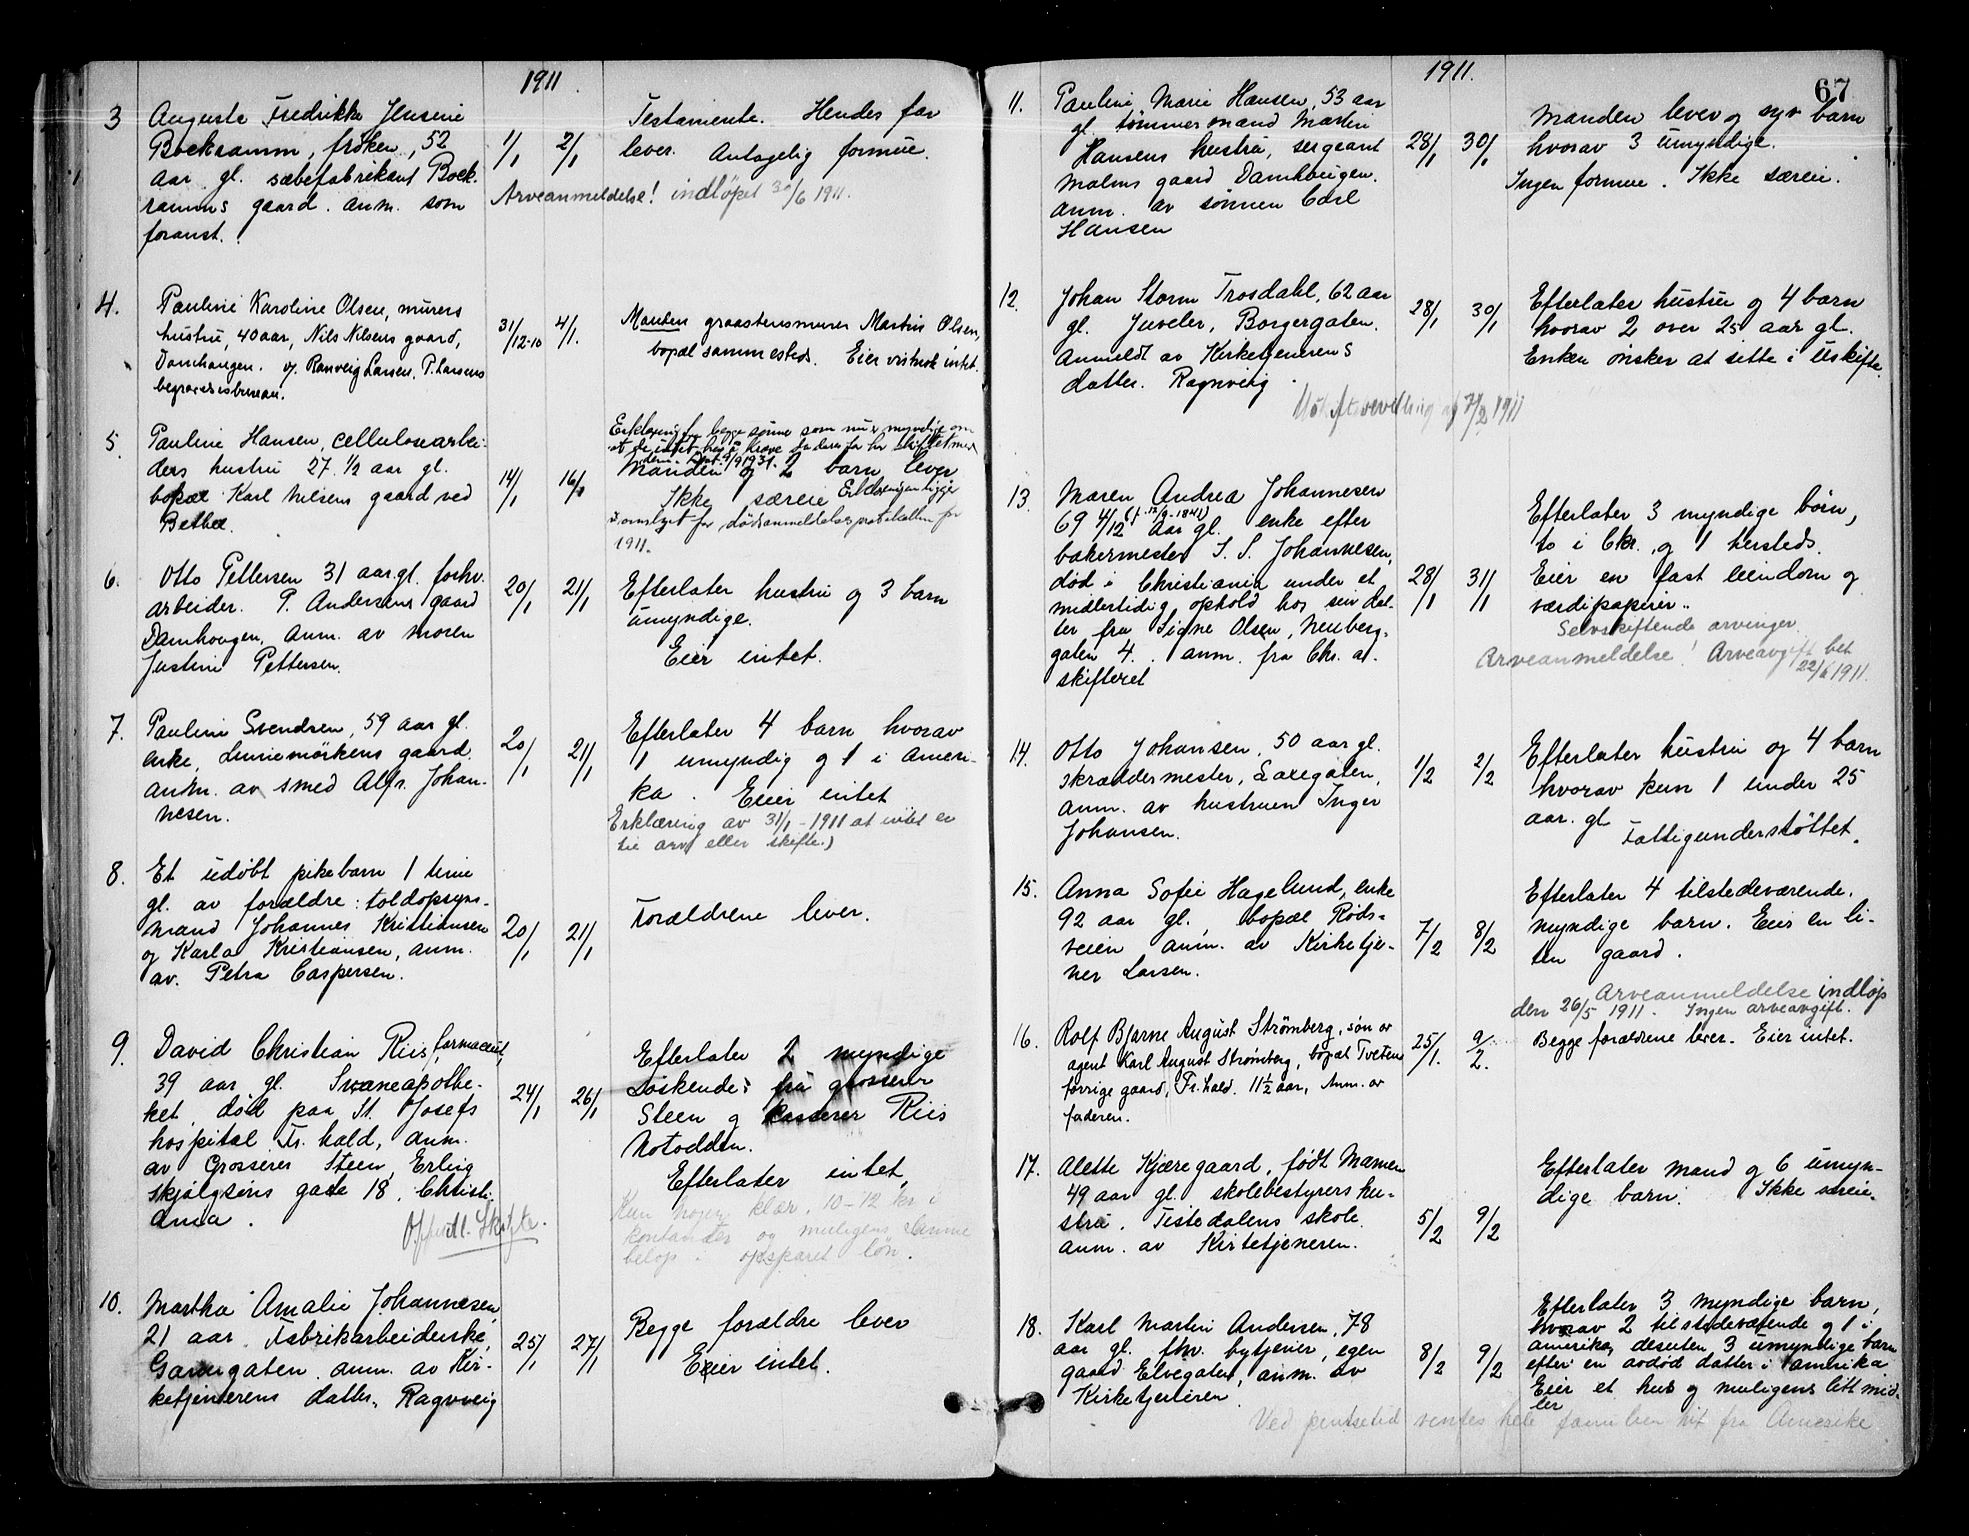 1911
3 Auguste Fredrikke Jensine
Bockramm, frøken, 52
aar gl. sæbefabrikant Bock-
ramms gaard. anm. som
foranst.
1/1 2/1
Testamente. Hendes far
lever. Antagelig formue.
Arveanmeldelse! indløpet 30/6 1911.
4. Pauline Karoline Olsen, murers
hustru, 40 aar, Nils Nilsens gaard,
Damhaugen. v/ Ranveig Larsen, P. Larsens
begravelsesbureau.
31/12-10 4/1.
Manden graastensmurer Martin Olsen,
bopæl sammesteds. Eier vistnok intet.
5 Pauline Hansen, cellulosearbei-
ders hustru 27 1/2 aar gl.
bopæl Karl Nilsens gaard ved
Bethel
14/1 16/1
Erklæring fra begge sønner som nu er myndige om
at de intet har å kreve da deres far har skiftet med
dem. Dat. 9/9 1931.
Manden og 2 barn lever
Ikke særeie Erklæringen ligger
i omslaget for dødsanmeldelsesprotokollen for
1911.
6. Otto Pettersen 31 aar gl. forhv.
arbeider. P. Andersens gaard
Damhaugen, anm. av moren
Justine Pettersen.
20/1 21/1
Efterlater hustru og 3 barn
umyndige.
Eier intet.
7. Pauline Svendsen, 59 aar gl.
enke, Liniemørkens gaard.
anm. av smed Alfr. Johan-
nesen.
20/1 21/1
Efterlater 4 barn hvorav
1 umyndig og 1 i Ameri-
ka. Eier intet
Erklæring av 31/1-1911 at intet er
til arv eller skifte.)
8. Et udøbt pikebarn 1 time
gl. av forældre: toldopsyns-
mand Johannes Kristiansen
og Karla Kristiansen, anm.
av. Petra Caspersen.
20/1 21/1
Forældrene lever.
9. David Christian Riis, farmaceut,
39 aar gl. Svaneapothe-
ket, død paa St. Josefs
hospital Fr. hald, anm.
av Grosserer Steen, Erling
Skjalgsøns gate 18, Christi-
ania.
Offentl. Skifte.
24/1 26/1
Efterlater 2 myndige
søskende: fru grosserer
Steen og kasserer Riis
Notodden.
Efterlater intet,
Kun nogen klær, 10-12 kr i
kontanter og muligens samme
beløp i opsparet løn.
10. Martha Amalie Johannesen,
21 aar. Fabrikarbeiderske,
Garvergaten. anm. av Kir-
ketjenerens datter, Ragnveig
25/1 27/1
Begge forældre lever
Eier intet.
1911. 67
11. Pauline Marie Hansen, 53 aar
gl. tømmermand Martin
Hansens hustru, sergeant
Malms gaard Damhaugen.
anm. av sønnen Carl
Hansen
28/1 30/1
Manden lever og syv barn
hvorav 3 umyndige.
Ingen formue. Ikke særeie.
12. Johan Storm Trosdahl, 62 aar
gl. Juveler, Borgergaten.
Anmeldt av Kirketjenerens
datter. Ragnveig.
28/1 30/1
Efterlater hustru og 4 barn
hvorav 2 over 25 aar gl.
Enken ønsker at sitte i Uskifte.
Uskiftebevilling af 7/2 1911
13. Maren Andrea Johannesen
69 4/12 (f. 12/9-1841) aar gl. enke efter
bakermester S. S. Johannesen,
død i Christiania under et
midlertidig ophold hos sin dat-
ter fru Signe Olsen, Neuberg-
gaten 4. anm. fra Chr. a.
skifteret
28/1 31/1
Efterlater 3 myndige børn,
to i Chr. og 1 hersteds.
Eier en fast eiendom og
værdipapirer.
Selvskiftende arvinger.
Arveanmeldelse! Arveavgift bet
22/6 1911.
14. Otto Johansen, 50 aar gl.
skræddermester, Saxegaten,
anm. av hustruen Inger
Johansen.
1/2 2/2
Efterlater hustru og 4 barn
hvorav kun 1 under 25
aar. gl
Fattigunderstøttet.
15. Anna Sofie Hagelund, enke
92 aar gl., bopæl Røds-
veien anm. av Kirketje-
ner Larsen.
7/2 8/2
Efterlater 4 tilstedeværende.
myndige barn. Eier en li-
ten gaard.
Arveanmeldelse indløp
den 26/5 1911. Ingen arveavgift.
16. Rolf Bjarne August Strømberg, søn av
agent Karl August Strømberg, bopæl Tvetens
forrige gaard, Fr.hald. 11 1/2 aar, Anm. av
faderen.
25/1. 9/2.
Begge forældrene lever. Eier intet.
17. Alette Kjæregaard, født Mamen
49 aar gl. skolebestyrers hu-
stru. Tistedalens skole.
anm. av Kirketjeneren.
5/2 9/2
Efterlater mand og 6 umyn-
dige barn. Ikke særeie.
18. Karl Martin Andersen, 78
aar gl. fhv. bytjener, egen
gaard Elvegaten, anm. av
Kirketjeneren.
8/2 9/2
Efterlater 3 myndige barn,
hvorav 2 tilstedeværende og 1 i
amerika, desuten 3 umyndige barn
efter en avdød datter i amerika
Eier et hus og muligens litt mid-
ler
Ved pintsetid ventes hele familien hit fra Amerika